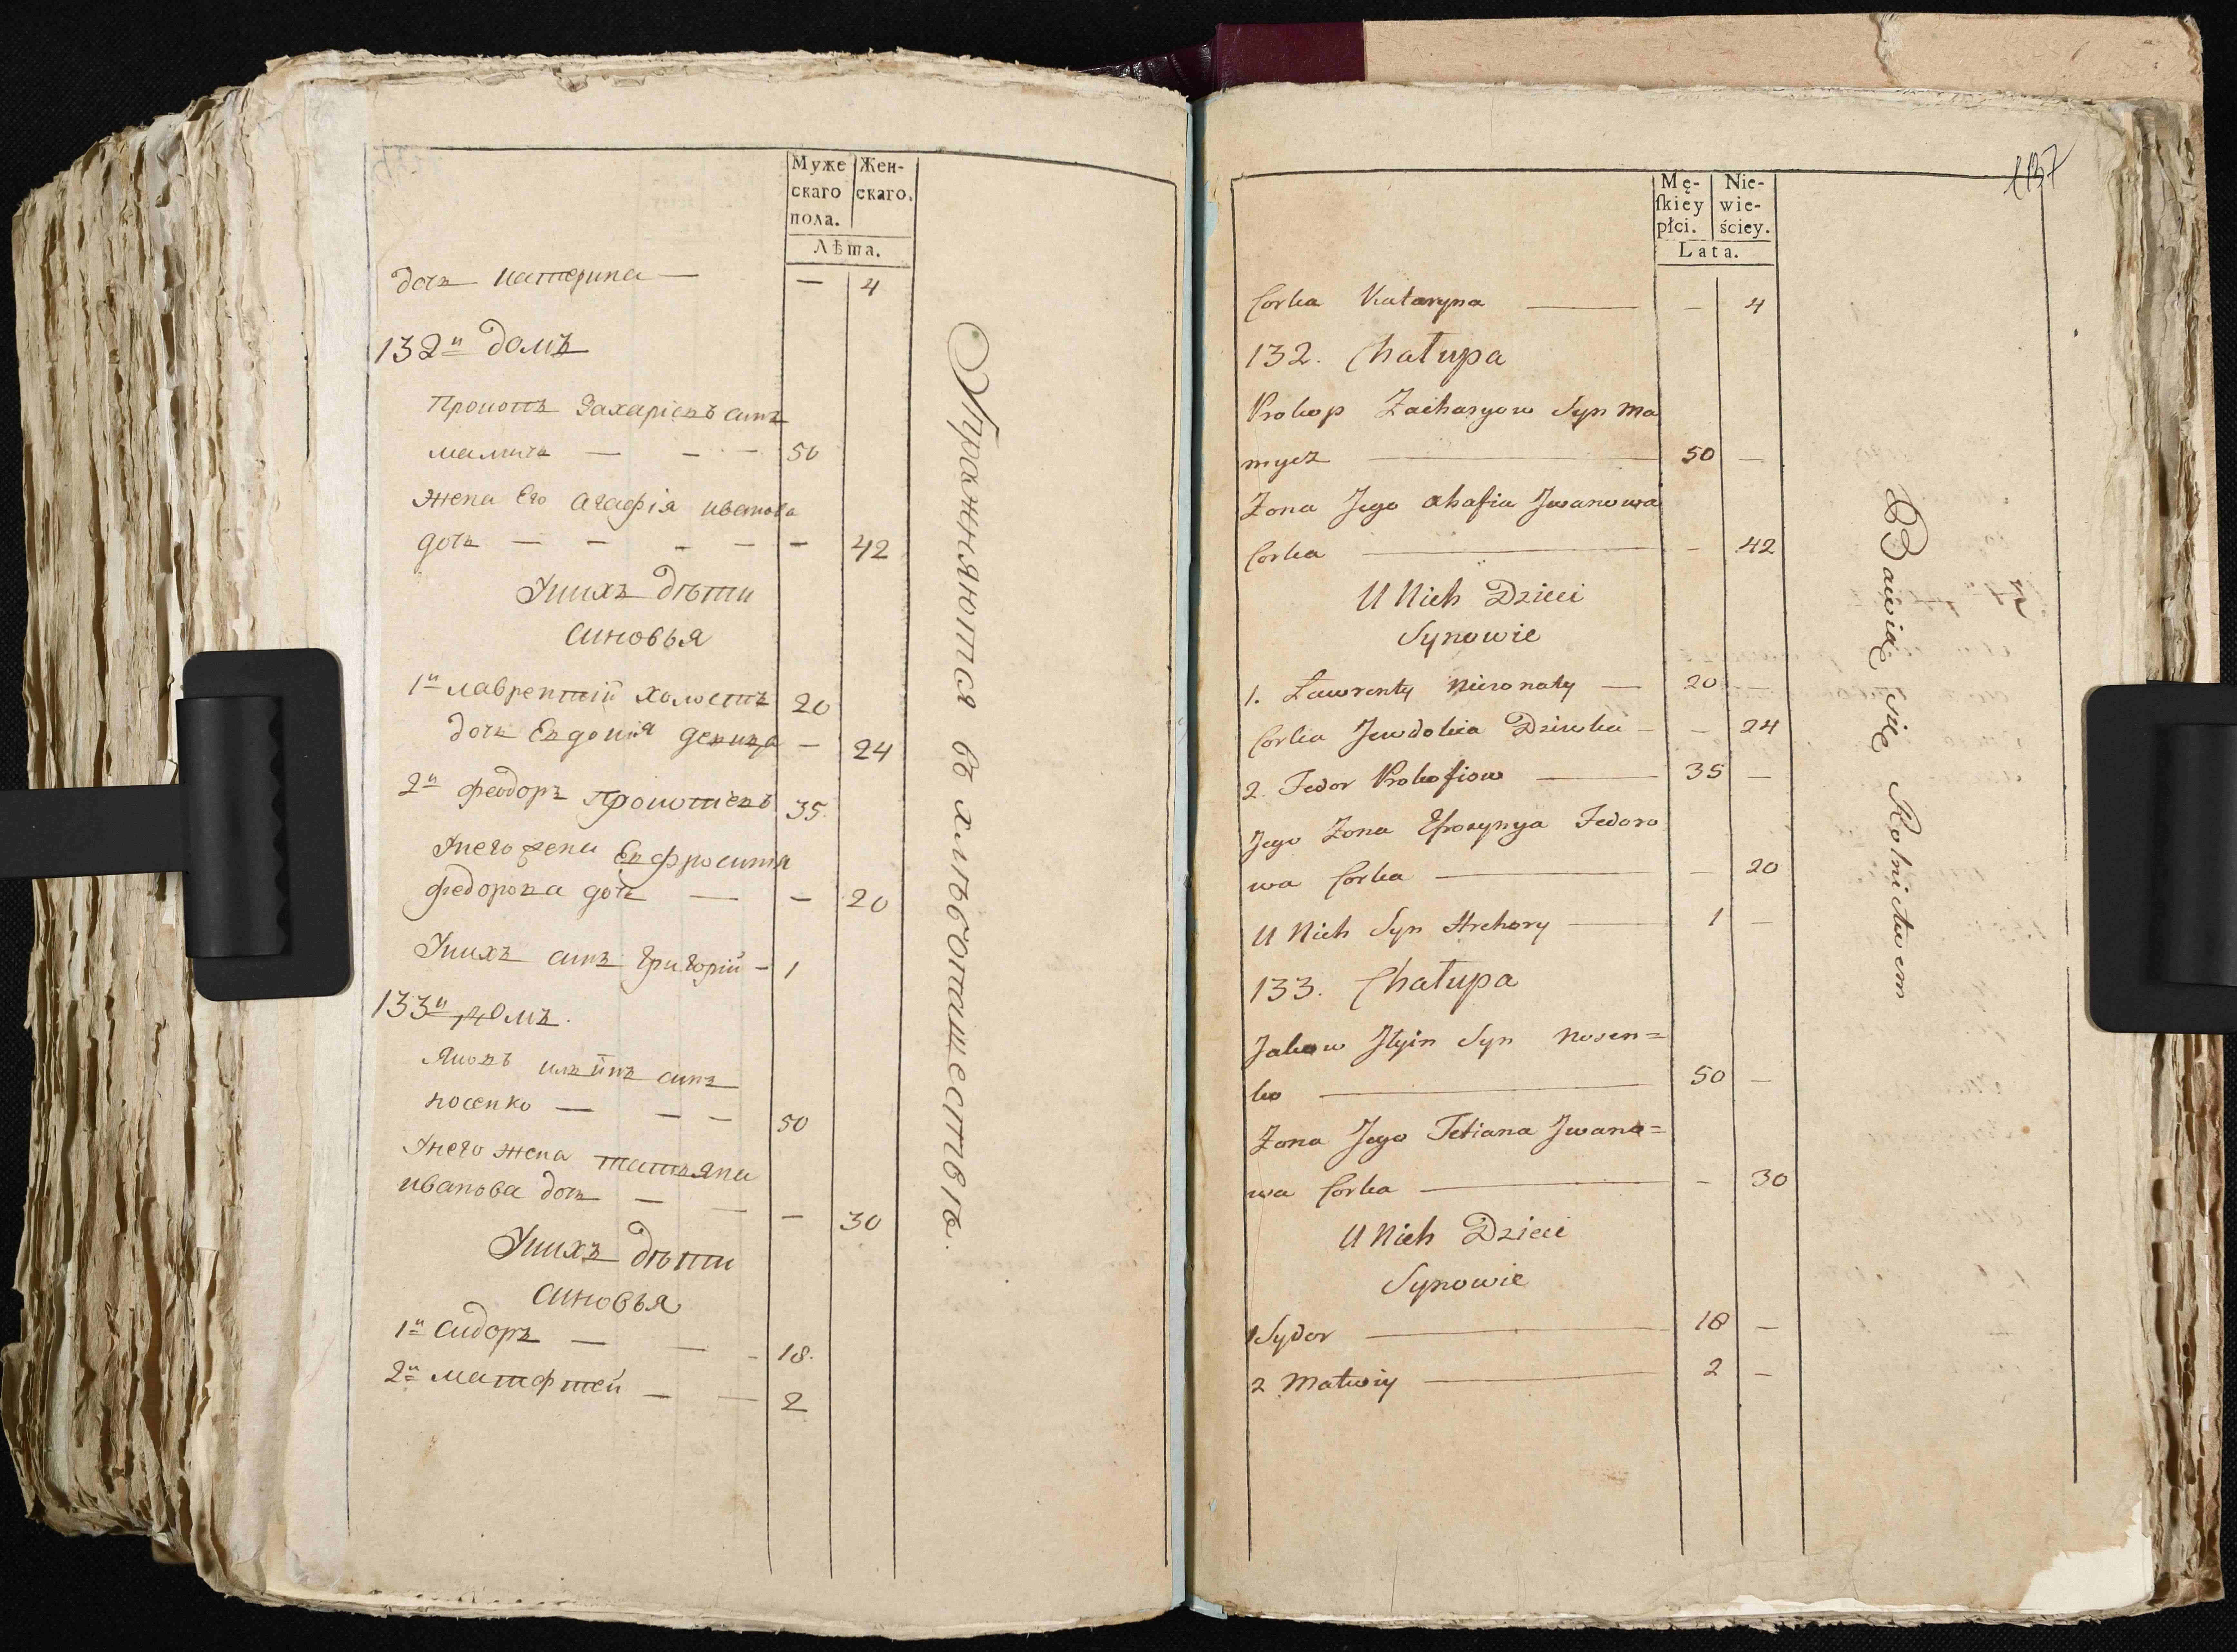 Муже
скаго
пола.
Жен-
скаго.
Лѣта.
дочь катерина — — 4
132й домъ
Прокопъ Захаріевъ синъ
мамичъ — — — 50
жена Его агафія иванова
дочь — — — — — 42
Унихъ дѣти
синовья
1й лаврентій холостъ 20
дочь Евдокія девица — 24
2й феодоръ прокопіевъ 35.
Унего жена Евфросинія
федорова дочь — — 20
Унихъ синъ григорій — 1
133й домъ.
Яковъ ильинъ синъ
носенко — — — 50
Унего жена татьяна
иванова дочь — — — 30
Унихъ дѣти
синовья
1й сидоръ — — - 18.
2й матфтей — — 2
Упражняются въ хлѣбопашествѣ.
137
Mę-
ſkiey
płci.
Nie-
wie-
ściey.
Lata.
Corka Kataryna — — 4
132. Chałupa
Prokop Zacharyow Syn Ma
mycz — 50 —
Żona Jego ahafia Jwanowa
Corka — — 42
U Nich Dzieci
Synowie
1. Ławrenty Nieżonaty — 20 —
Corka Jewdokia Dziewka — — 24
2. Fedor Prokofiow — 35 —
Jego Żona Efrosynya Fedoro
wa Corka — — 20
U Nich Syn Hrehory — 1 —
133. Chałupa
Jakow Jlyin Syn Nosen=
ko — 50 —
Żona Jego Tetiana Jwano=
wa Corka — — 30
U Nich Dzieci
Synowie
1 Sydor — 18 —
2 Matwiy — 2 —
Bawią się Rolnictwem